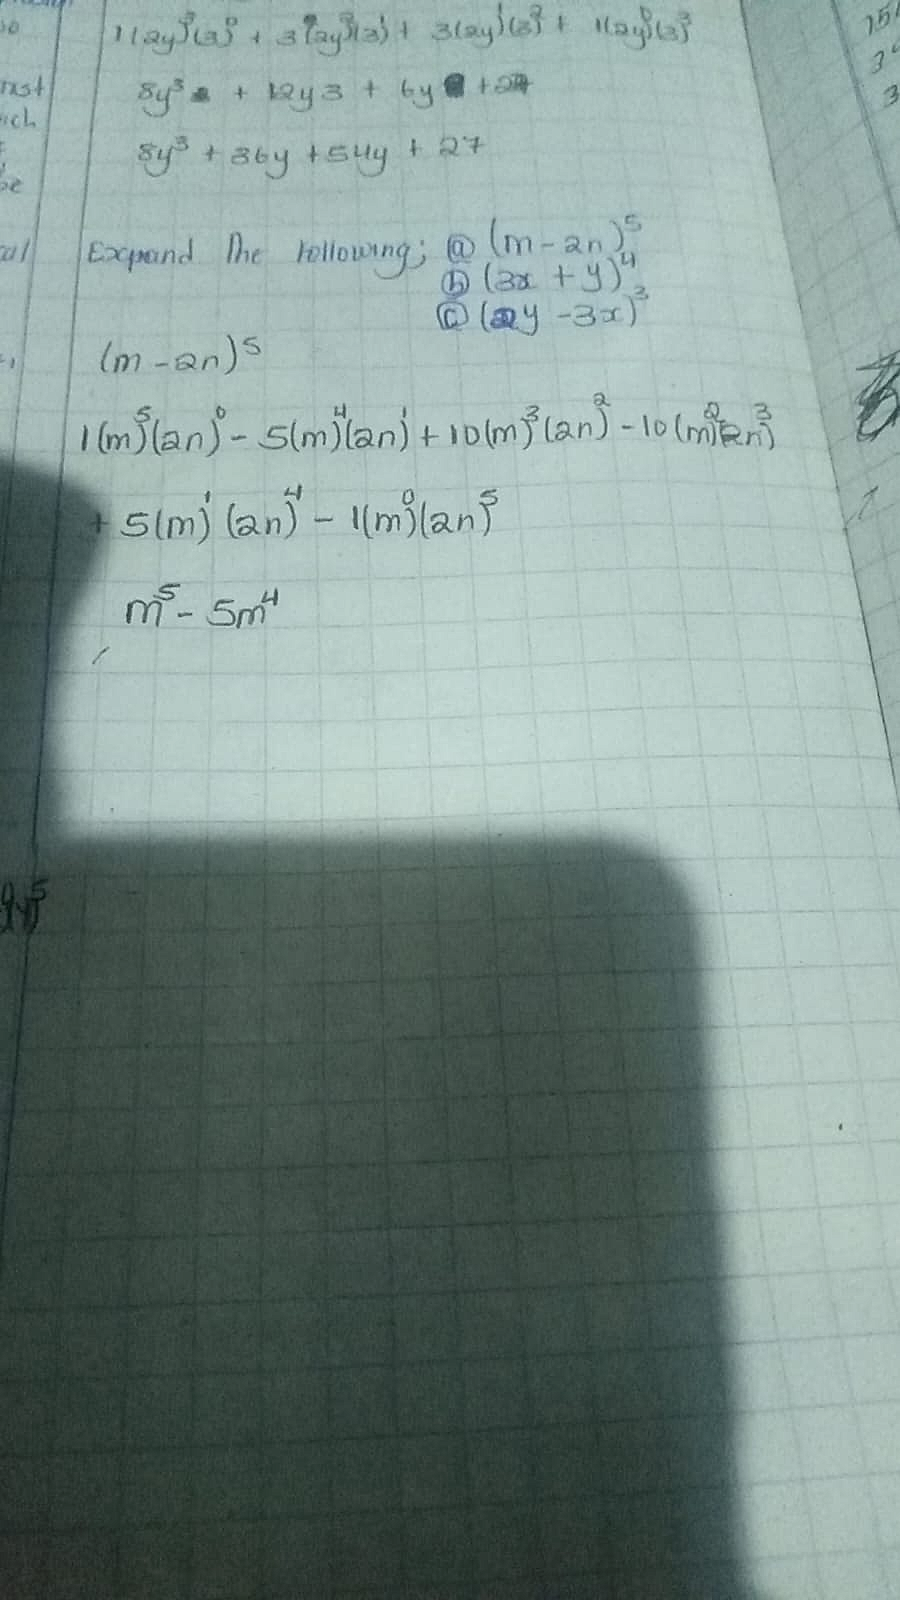 1(2y)³(3)⁰ + 3(2y)²(3)¹ + 3(2y)¹(3)² + 1(2y)⁰(3)³
8y³ + 12y3 + 6y + 27
8y³ + 36y + 54y + 27
Expand The following; ⓐ (m - 2n)⁵
ⓑ (3x + y)⁴
ⓒ (2y - 3x)³
(m - 2n)⁵
1(m)⁵(2n)⁰ - 5(m)⁴(2n)¹ + 10(m)³(2n)² - 10(m)²(2n)³
+ 5(m)¹(2n)⁴ - 1(m)⁰(2n)⁵
m⁵ - 5m⁴